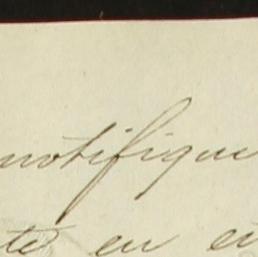 notifique
te en